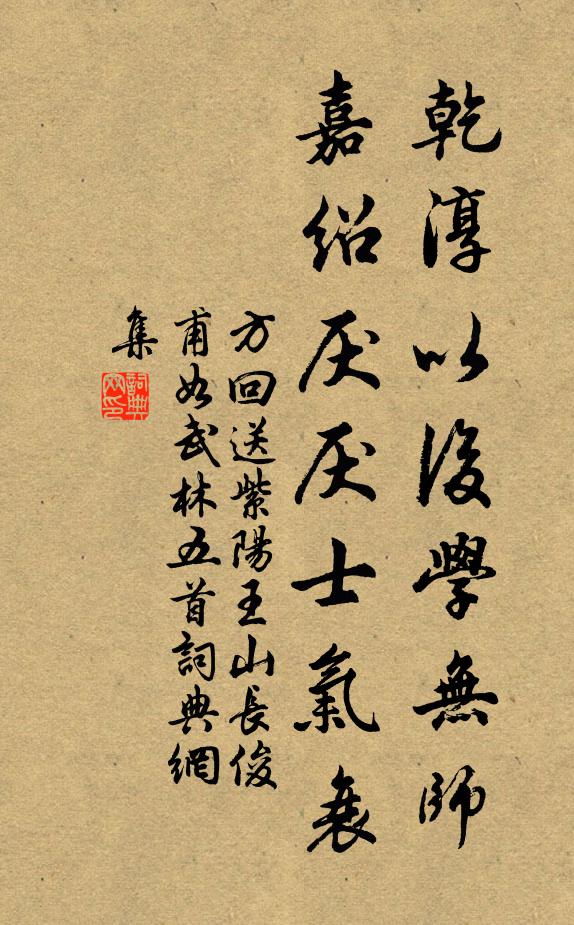 乾淳以後學無師
嘉紹厌厌士氣衰
方回送紫陽王山長俊
甫如武林五首詞典網
集
詞典網印